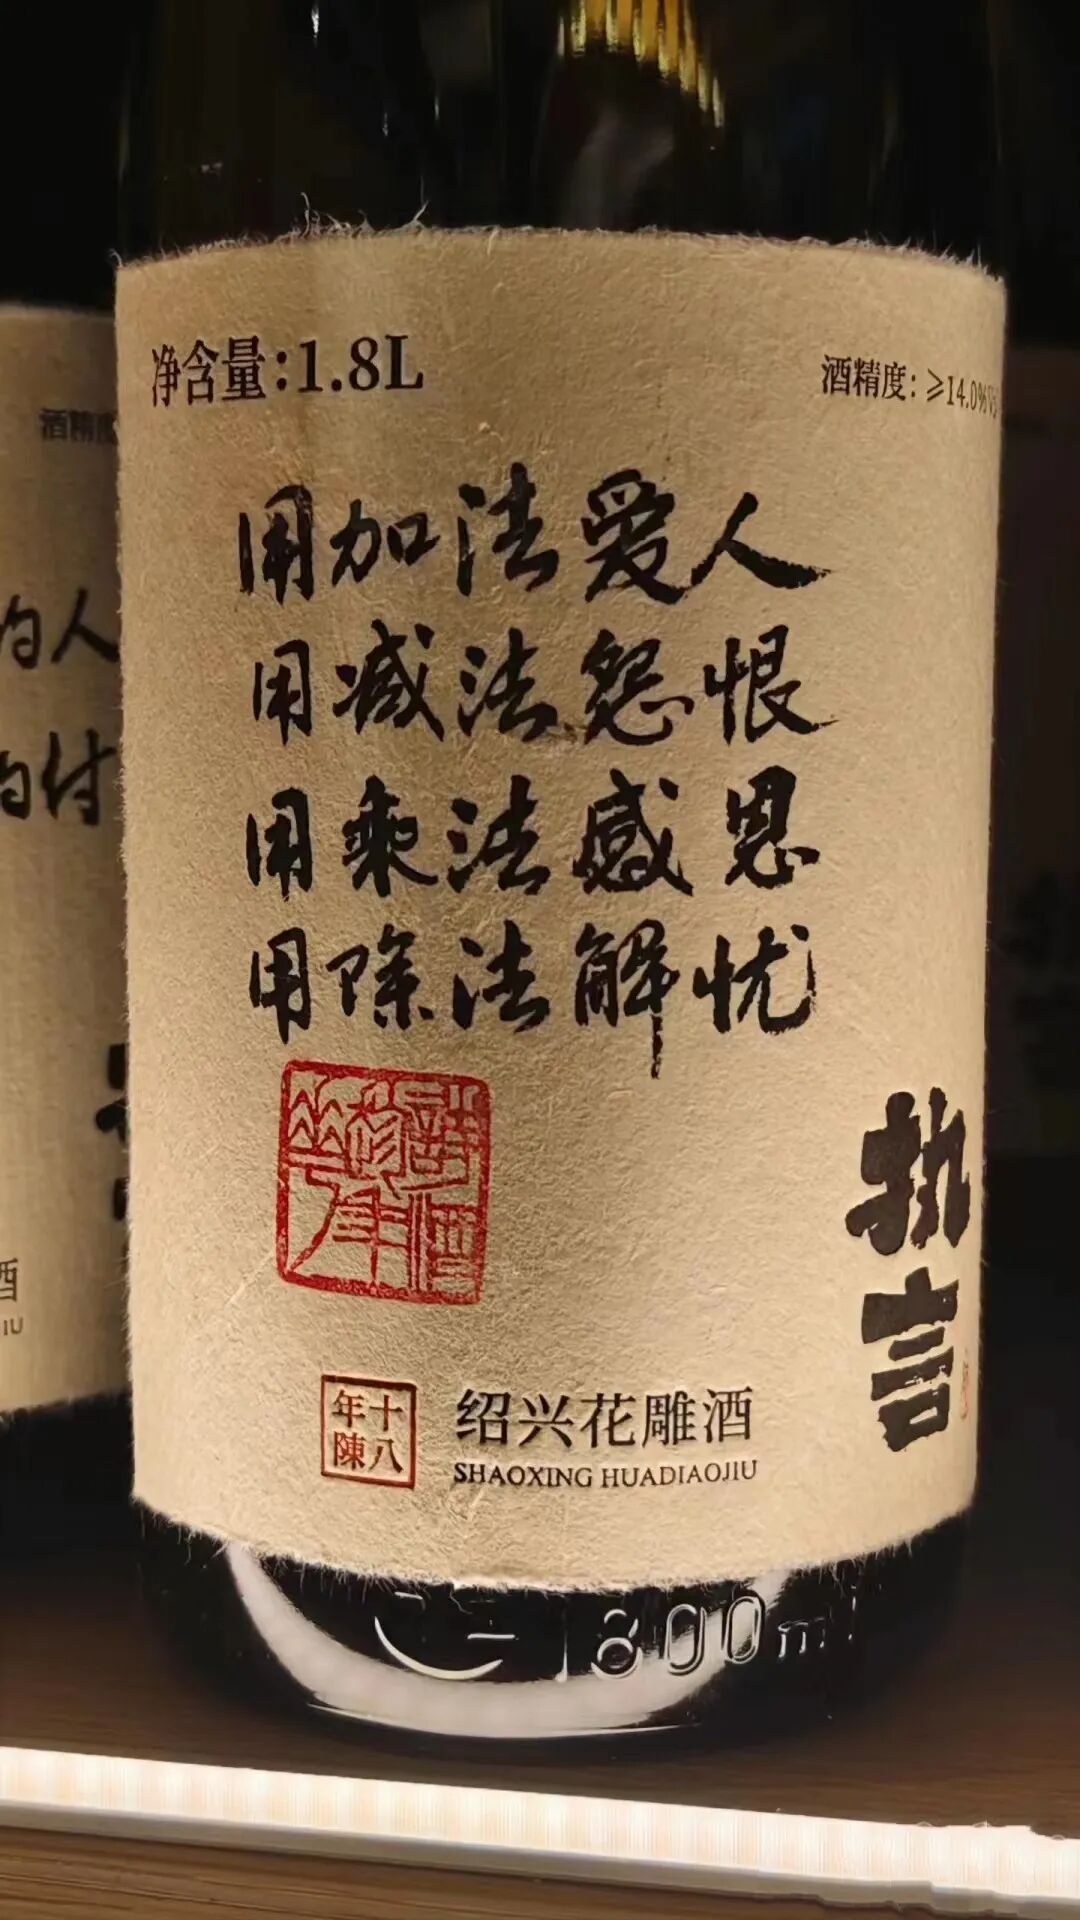 净含量:1.8L
酒精度:≥14.0%V
用加法爱人
用减法怨恨
用乘法感恩
用除法解忧
执言
十八年陳
绍兴花雕酒
SHAOXING HUADIAOJIU
1800ml
酒精度
的人
的付
酒
JIU